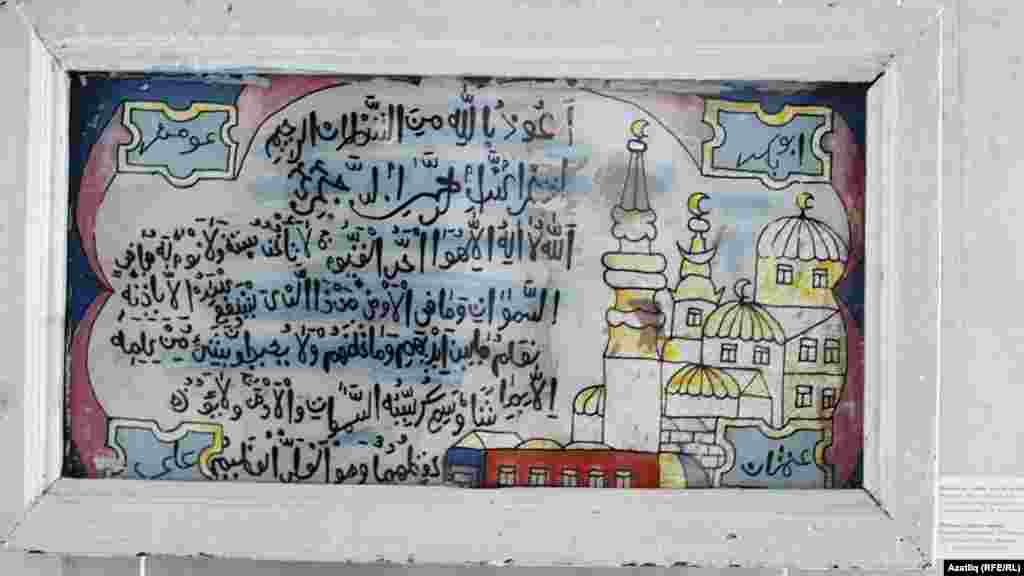 ابو بكر
عومر
اعوذ بالله من الشيطان الرجيم
الله لا اله الا هو الحي القيوم لا تأخذه سنة ولا نوم له ما في
السموات وما في الأرض من ذا الذي يشفع عنده الا باذنه
يعلم ما بين أيديهم وما خلفهم ولا يحيطون بشيء من علمه
الا بما شاء وسع كرسيه السموات والأرض ولا يؤده
حفظهما وهو العلي العظيم
عثمان
علي
Azatliq (RFE/RL)